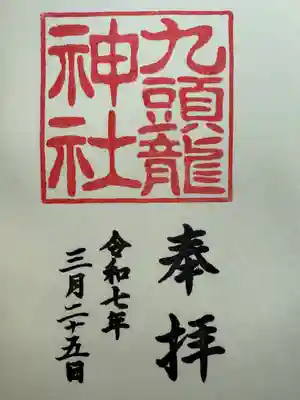 九頭龍
神社
奉拝
令和七年
三月二十五日